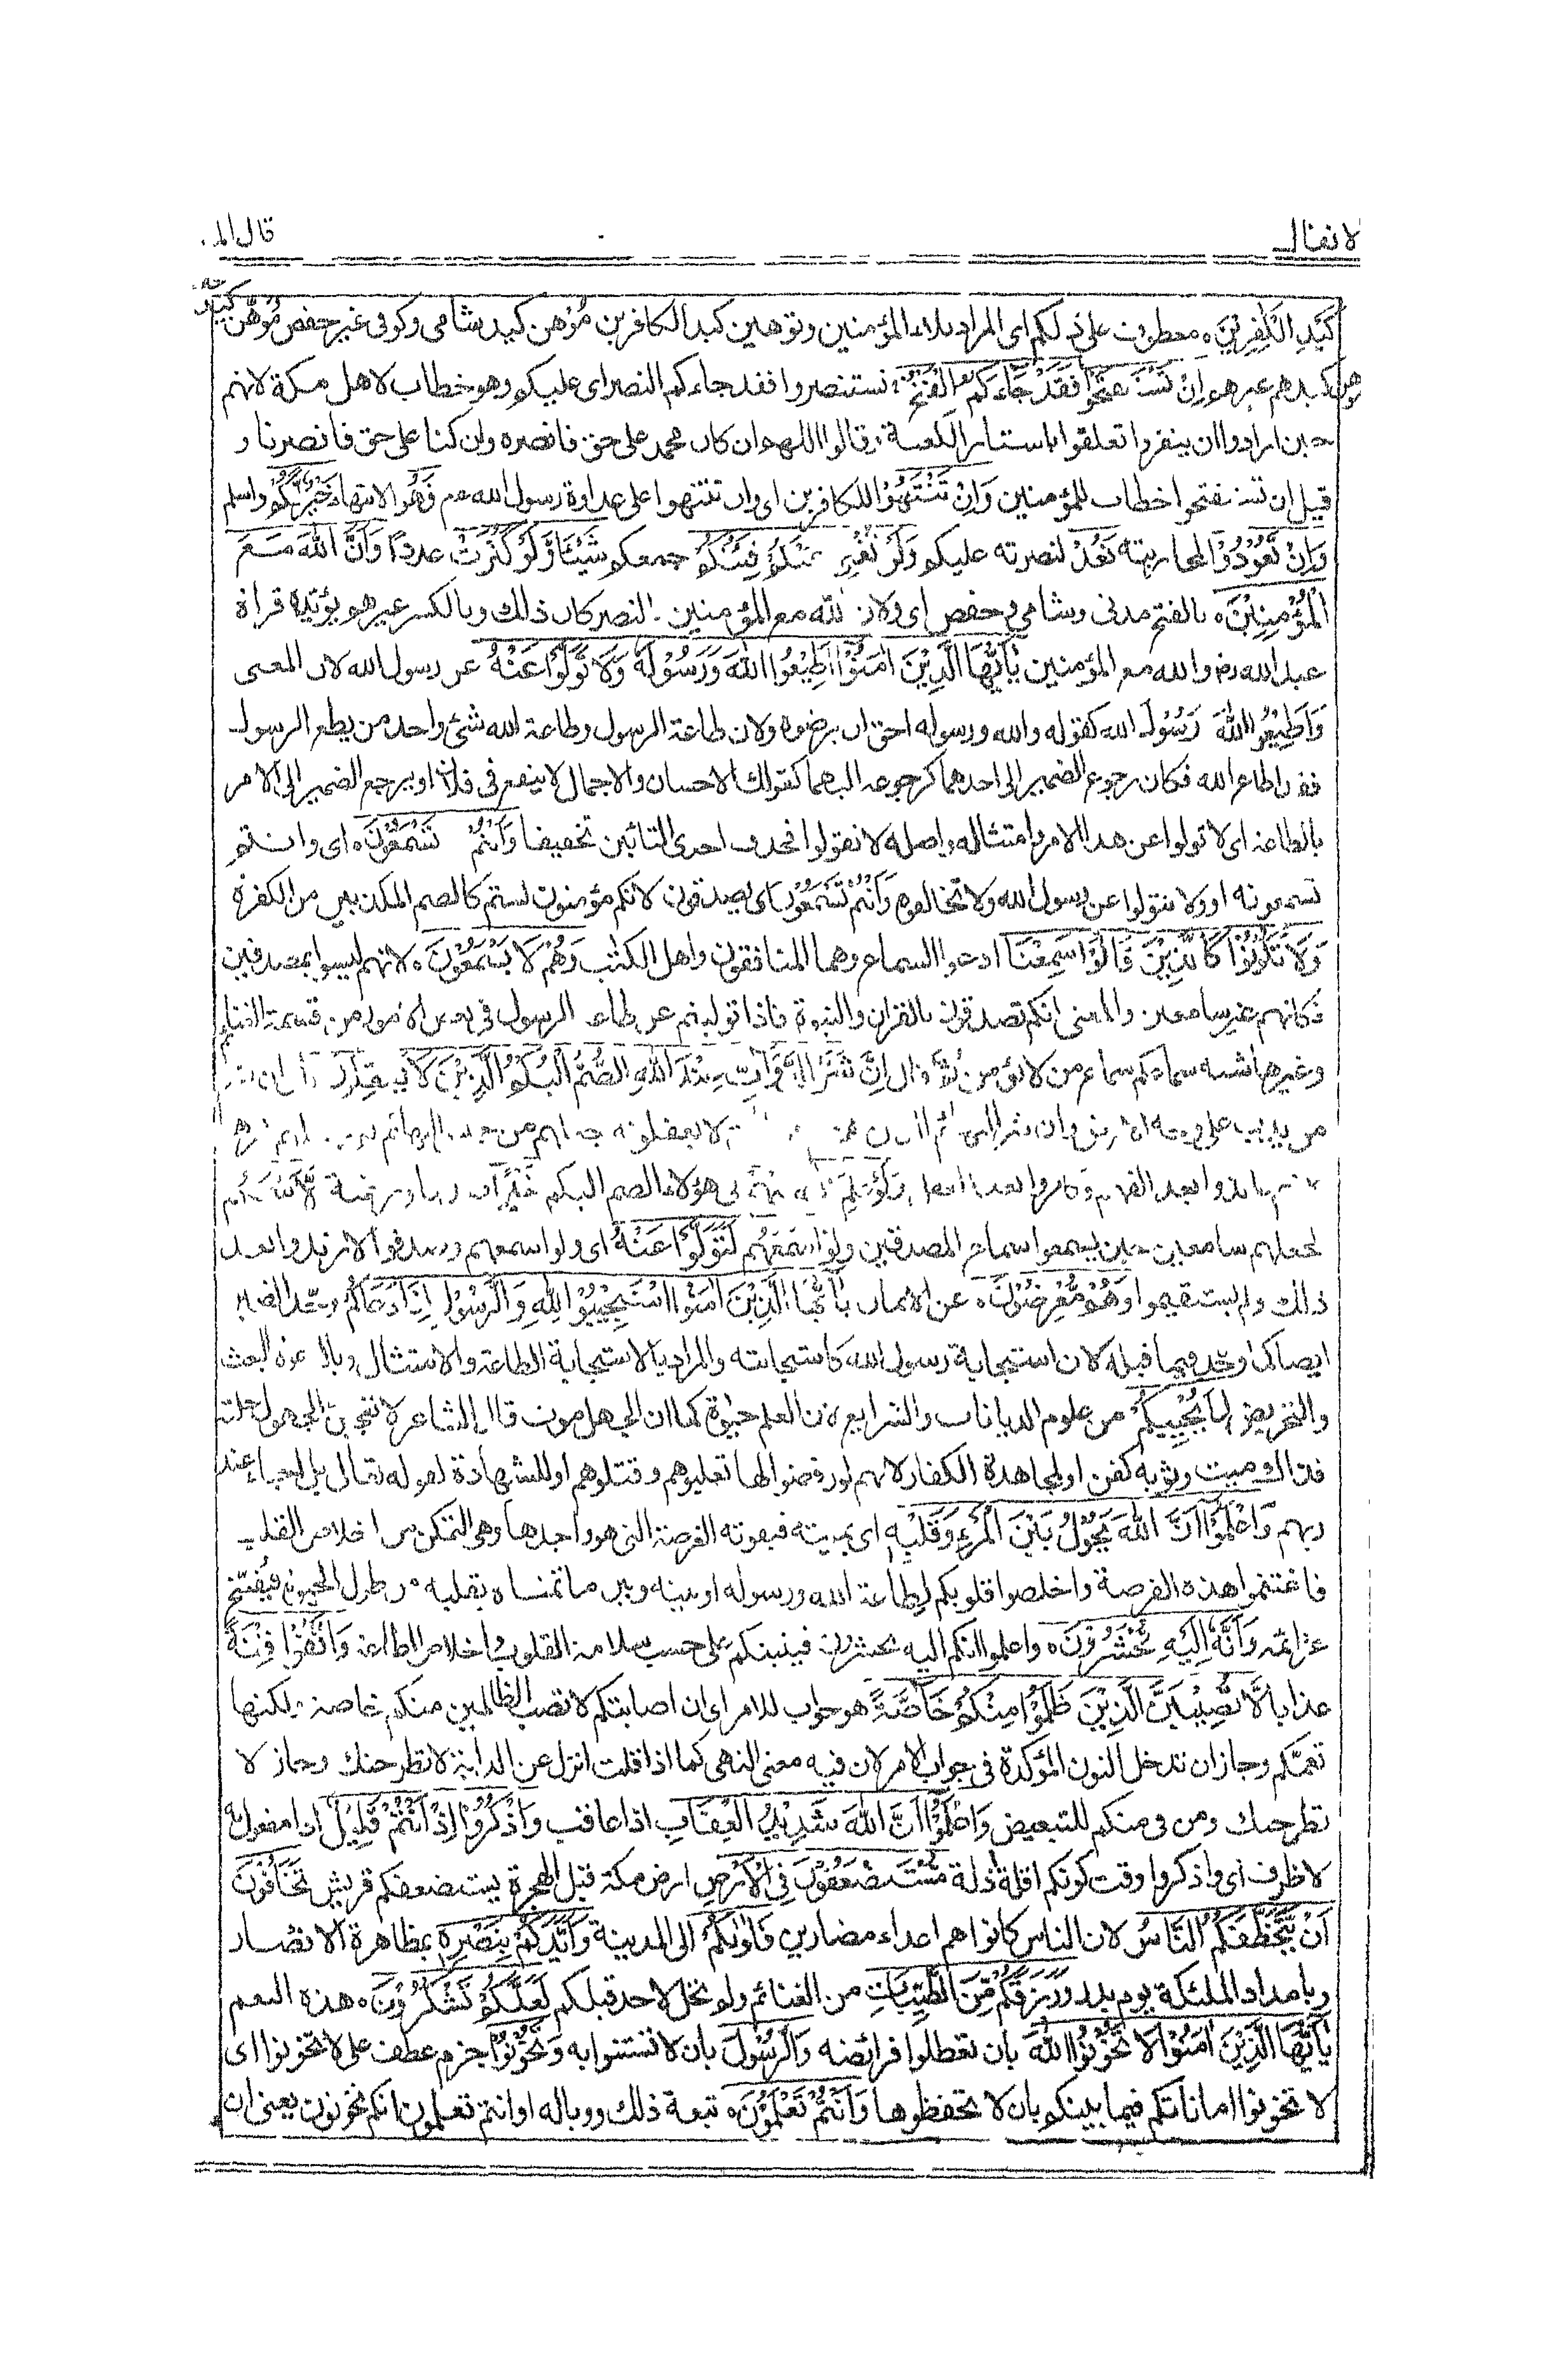 الانفال
قال الملا
كَيْدِ الْكٰفِرِيْنَ ه معطوف على ذلكم اى المراد بلاء المؤمنين وتوهين كيد الكافرين مُوْهِن كيد شامى وكوفى غير حفص مُوَهِّن كيد
كيدهم غيرهم اِنْ تَسْتَفْتِحُوْا فَقَدْ جَآءَكُمُ الْفَتْحُ تستنصروا فقد جاءكم النصر اى عليكم وهو خطاب لاهل مكة لانهم
حين ارادوا ان ينفروا تعلقوا باستار الكعبة وقالوا اللهم ان كان محمد على حق فانصره وان كنا على حق فانصرنا و
قيل ان تستفتحوا خطاب للمؤمنين وَاِنْ تَنْتَهُوْا للكافرين اى وان تنتهوا على عداوة رسول الله عم فَهُوَ الانتهاء خَيْرٌ لَّكُمْ واسلم
وَاِنْ تَعُوْدُوْا لمحاربته نَعُدْ لنصرته عليكم وَلَنْ تُغْنِيَ عَنْكُمْ فِئَتُكُمْ جمعكم شَيْئًا وَّلَوْ كَثُرَتْ عددا وَاَنَّ اللّٰهَ مَعَ
الْمُؤْمِنِيْنَ ه بالفتح مدنى وشامى وحفص اى ولان الله مع المؤمنين بالنصر كان ذلك وبالكسر غيرهم يؤيده قراة
عبد الله رض والله مع المؤمنين يٰٓاَيُّهَا الَّذِيْنَ اٰمَنُوْٓا اَطِيْعُوا اللّٰهَ وَرَسُوْلَهٗ وَلَا تَوَلَّوْا عَنْهُ عن رسول الله لان المعنى
وَاَطِيْعُوا اللّٰهَ رَسُوْلَ الله كقوله والله ورسوله احق ان يرضوه ولان طاعة الرسول وطاعة الله شئ واحد من يطع الرسول
فقد اطاع الله فكان رجوع الضمير الى احدهما كرجوعه اليهما كقولك الاحسان والاجمال لا ينفع فى فلان او يرجع الضمير الى الامر
بالطاعة اى لا تولوا عن هذا الامر وامتثاله واصله لا تتولوا فحذف احدى التائين تخفيفا وَاَنْتُمْ تَسْمَعُوْنَ ه اى وانتم
تسمعونه او ولا تتولوا عن رسول الله ولا تخالفوه وَاَنْتُمْ تَسْمَعُوْنَ اى تصدقون لانكم مؤمنون لستم كالصم المكذبين من الكفرة
وَلَا تَكُوْنُوْا كَالَّذِيْنَ قَالُوْا سَمِعْنَا ادعوا السماع وهم المنافقون واهل الكتٰب وَهُمْ لَا يَسْمَعُوْنَ ه لانهم ليسوا بمصدقين
فكانهم غير سامعين والمعنى انكم تصدقون بالقران والنبوة فاذا توليتم عن طاعة الرسول فى بعض الامور من قسمة الغنائم
وغيرها اشبه سماعكم سماع من لا يؤمن ثم قال اِنَّ شَرَّ الدَّوَآبِّ عِنْدَ اللّٰهِ الصُّمُّ الْبُكْمُ الَّذِيْنَ لَا يَعْقِلُوْنَ اى ان
من يدب على وجه الارض وان شر البهائم لا يعقلونه جعلهم من جنس البهائم
عاندوا بعد الفهم وكابروا بعد العقل وَلَوْ عَلِمَ اللّٰهُ فِيْهِمْ فى هؤلاء الصم البكم خَيْرًا ورغبة لَّاَسْمَعَهُمْ
لجعلهم سامعين حين يسمعوا سماع المصدقين وَلَوْ اَسْمَعَهُمْ لَتَوَلَّوْا عَنْهُ اى ولو اسمعهم وصدقوا لارتدوا بعد
ذلك ولم يستقيموا وَهُمْ مُّعْرِضُوْنَ ه عن الايمان يٰٓاَيُّهَا الَّذِيْنَ اٰمَنُوا اسْتَجِيْبُوْا لِلّٰهِ وَلِلرَّسُوْلِ اِذَا دَعَاكُمْ وحد الضمير
ايضا كما وحد فيما قبله لان استجابة رسول الله كاستجابته والمراد بالاستجابة الطاعة والامتثال وبالدعوة البعث
والتحريض لِمَا يُحْيِيْكُمْ من علوم الديانات والشرايع لان العلم حيٰوة كما ان الجهل موت قال الشاعر لا تعجبن الجهول حلته
فذاك ميت وثوبه كفن او لمجاهدة الكفار لانهم لو رفضوها لغلبوهم وقتلوهم او للشهادة لقوله تعالى بل احياء عند
ربهم وَاعْلَمُوْٓا اَنَّ اللّٰهَ يَحُوْلُ بَيْنَ الْمَرْءِ وَقَلْبِهٖ اى يميته فيفوته الفرصة التى هو واجدها وهى التمكن من اخلاص القلب
فاغتنموا هذه الفرصة واخلصوا قلوبكم لطاعة الله ورسوله او بينه وبين ما تمناه بقلبه من طول الحيوة فيفسخ
عزائمه وَاَنَّهٗٓ اِلَيْهِ تُحْشَرُوْنَ ه واعلموا انكم اليه تحشرون فيثيبكم على حسب سلامة القلوب واخلاص الطاعة وَاتَّقُوْا فِتْنَةً
عذابا لَّا تُصِيْبَنَّ الَّذِيْنَ ظَلَمُوْا مِنْكُمْ خَآصَّةً هو جواب للامر اى ان اصابتكم لا تصب الظالمين منكم خاصة ولكنها
تعمكم وجاز ان تدخل النون المؤكدة فى جواب الامر لان فيه معنى النهى كما اذا قلت انزل عن الدابة لا تطرحنك وجاز لا
تطرحنك ومن فى منكم للتبعيض وَاعْلَمُوْٓا اَنَّ اللّٰهَ شَدِيْدُ الْعِقَابِ اذا عاقب وَاذْكُرُوْٓا اِذْ اَنْتُمْ قَلِيْلٌ اذ مفعول به
لا ظرف اى واذكروا وقت كونكم اقلة اذلة مُّسْتَضْعَفُوْنَ فِى الْاَرْضِ ارض مكة قبل الهجرة يستضعفكم قريش تَخَافُوْنَ
اَنْ يَّتَخَطَّفَكُمُ النَّاسُ لان الناس كانوا لهم اعداء مضارين فَاٰوٰىكُمْ الى المدينة وَاَيَّدَكُمْ بِنَصْرِهٖ بمظاهرة الانصار
وبامداد الملئكة يوم بدر وَرَزَقَكُمْ مِّنَ الطَّيِّبٰتِ من الغنائم ولم تحل لاحد قبلكم لَعَلَّكُمْ تَشْكُرُوْنَ ه هذه النعم
يٰٓاَيُّهَا الَّذِيْنَ اٰمَنُوْا لَا تَخُوْنُوا اللّٰهَ بان تعطلوا فرائضه وَالرَّسُوْلَ بان لا تستنوا به وَتَخُوْنُوْٓا جزم عطف على لا تخونوا اى
لا تخونوا اماناتكم فيما بينكم بان لا تحفظوها وَاَنْتُمْ تَعْلَمُوْنَ ه تبعة ذلك ووباله او انتم تعلمون انكم تخونون يعنى ان